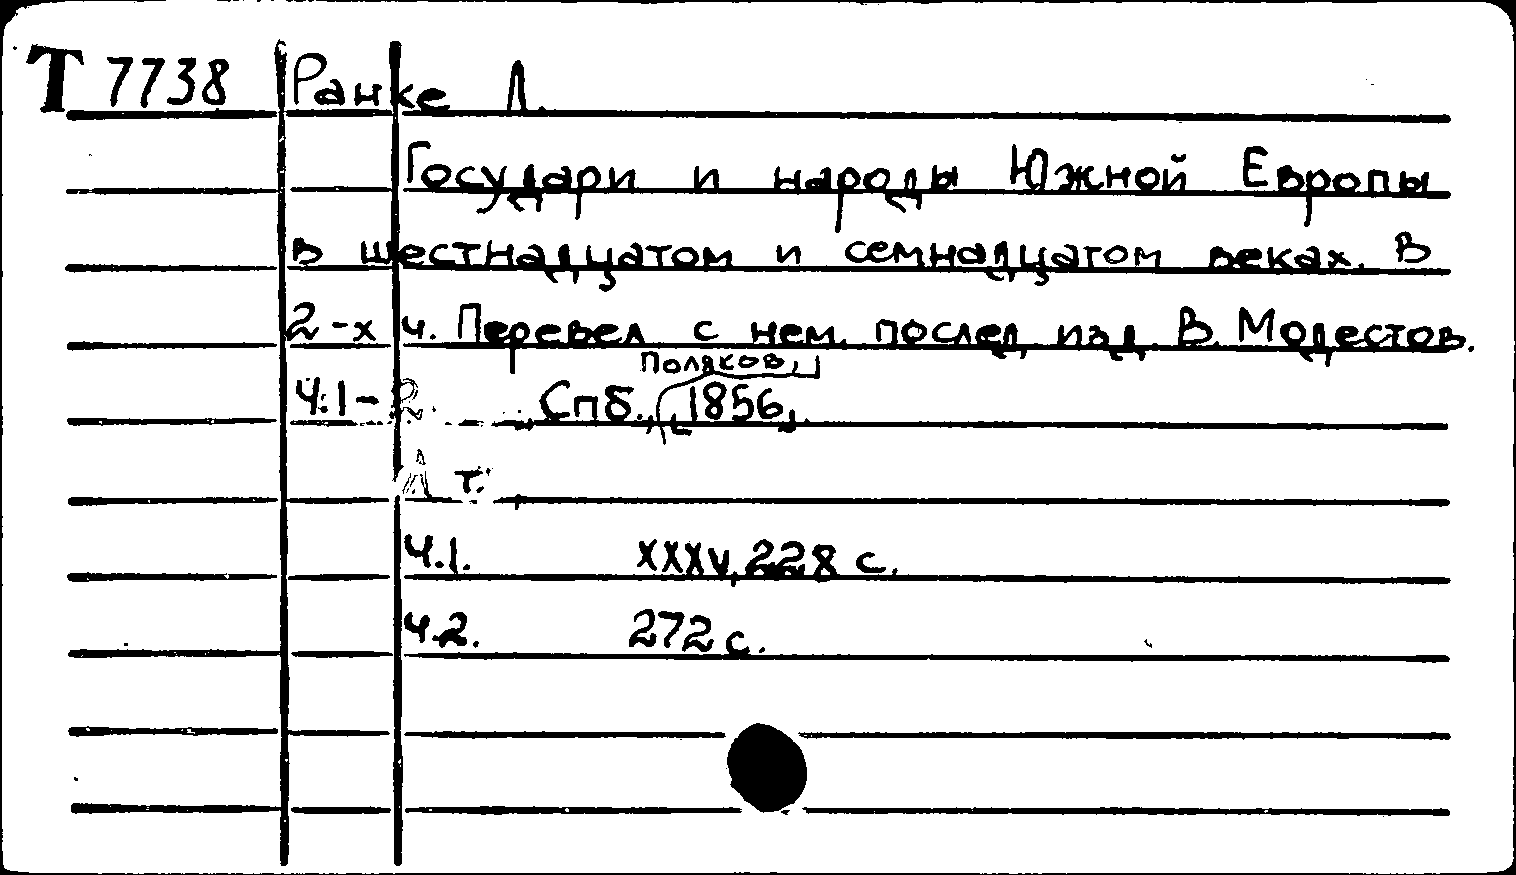 Т 7738 Ранке Л.
Государи и народы Южной Европы
в шестнадцатом и семнадцатом веках. В
2-х ч. Перевел с нем. послед изд. В. Модестов.
Поляков,
Ч.1-2. Спб., [1856].
т.
Ч.1. XXXV, 228 с.
Ч.2. 272 с.